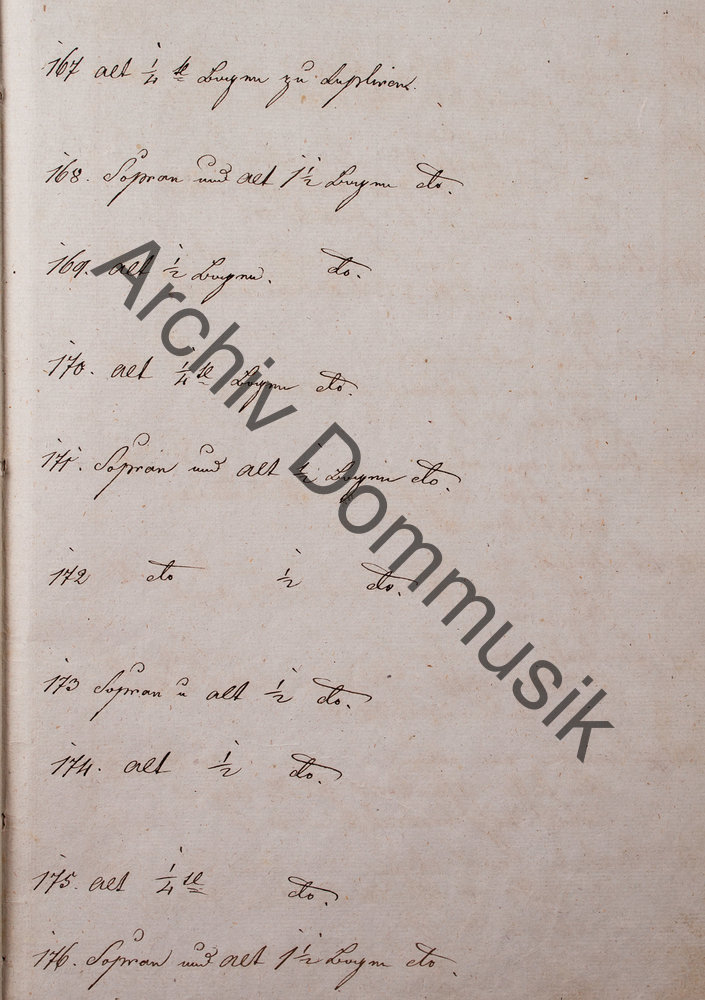 167 alt 1/4 tl Bogen zu dupliren.
168. Sopran und alt 1 1/2 Bogen do.
169. alt 1/2 Bogen. do.
170. alt 1/4 tl Bogen do.
171. Sopran und alt 1/2 Bogen do.
172 do 1/2 do.
173 Sopran u alt 1/2 do.
174. alt 1/2 do.
175. alt 1/4 tl do.
176. Sopran und alt 1 1/2 Bogen do.
Archiv Dommusik